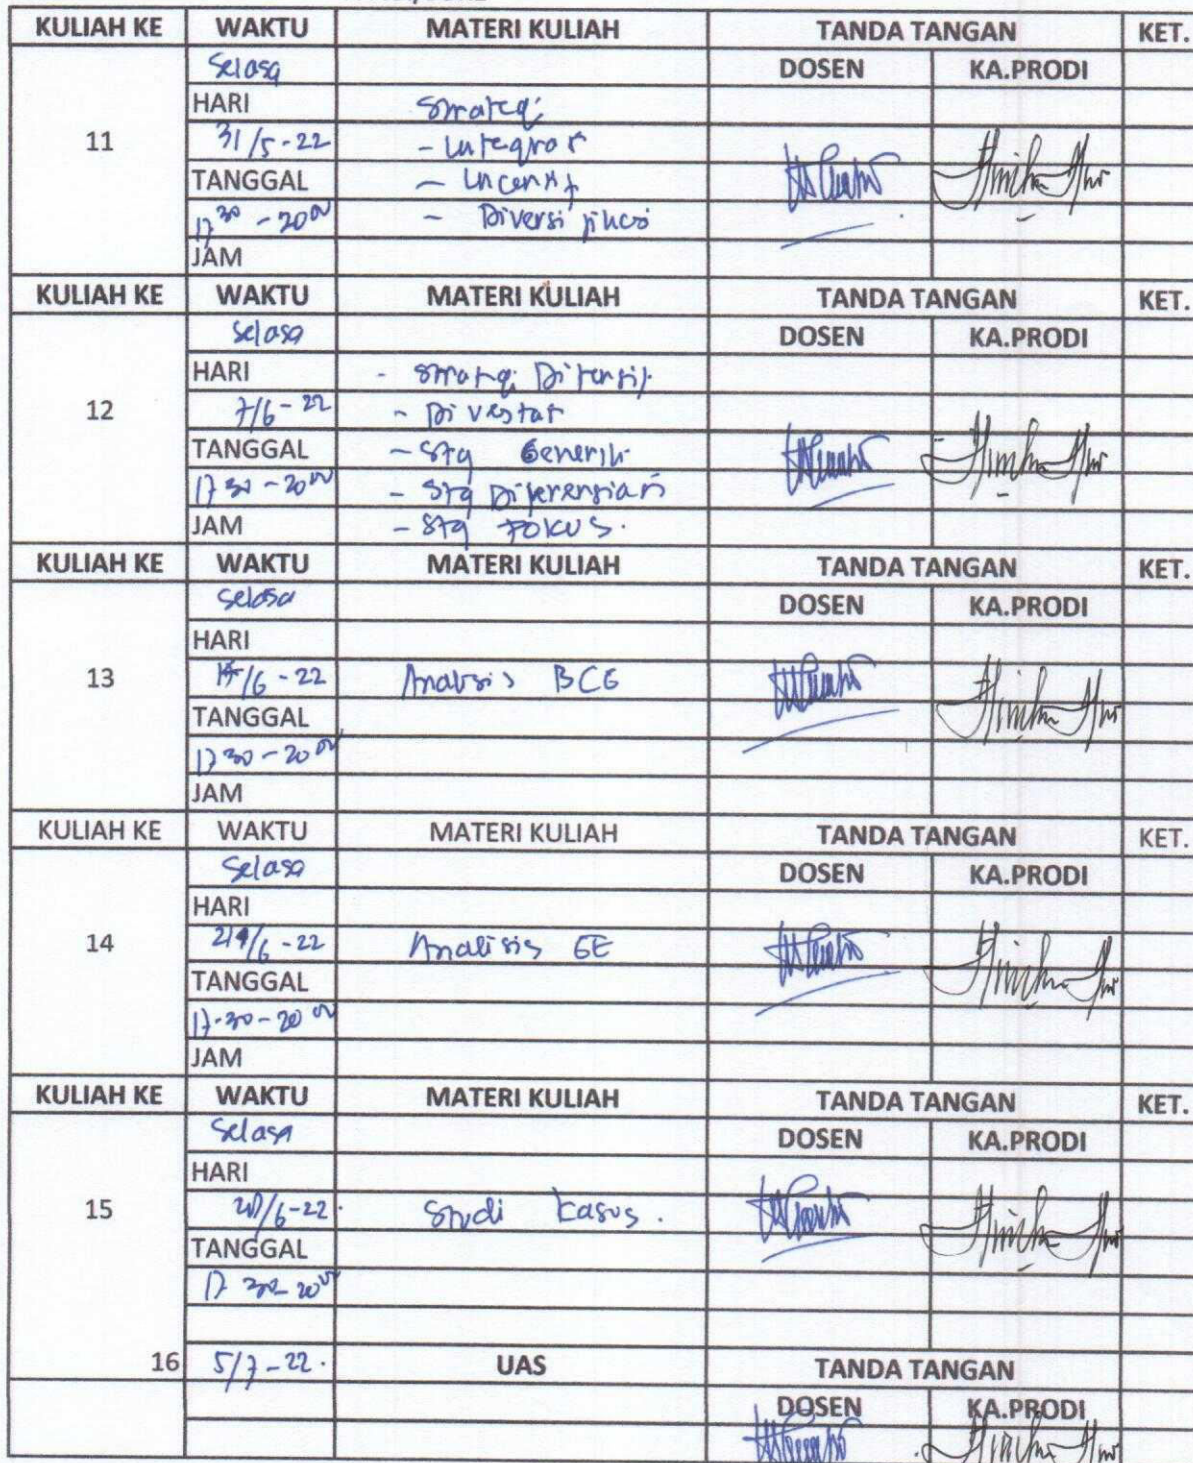 KULIAH KE WAKTU MATERI KULIAH TANDA TANGAN KET.
Selasa DOSEN KA.PRODI
HARI Strategi
11 31/5-22 - Integrasi
TANGGAL - Intensif
17 30 - 20 00 - Diversifikasi
JAM
KULIAH KE WAKTU MATERI KULIAH TANDA TANGAN KET.
Selasa DOSEN KA.PRODI
HARI - Strategi Difensif
12 7/6-22 - Divestasi
TANGGAL - Stg Generik
17 30 - 20 00 - Stg Diferensiasi
JAM - Stg Fokus.
KULIAH KE WAKTU MATERI KULIAH TANDA TANGAN KET.
Selasa DOSEN KA.PRODI
HARI
13 14/6-22 Analisis BCG
TANGGAL
17 30 - 20 00
JAM
KULIAH KE WAKTU MATERI KULIAH TANDA TANGAN KET.
Selasa DOSEN KA.PRODI
HARI
14 21/6-22 Analisis GE
TANGGAL
17.30 - 20 00
JAM
KULIAH KE WAKTU MATERI KULIAH TANDA TANGAN KET.
Selasa DOSEN KA.PRODI
HARI
15 28/6-22. Studi Kasus.
TANGGAL
17 30 - 20 00
16 5/7-22. UAS TANDA TANGAN
DOSEN KA.PRODI